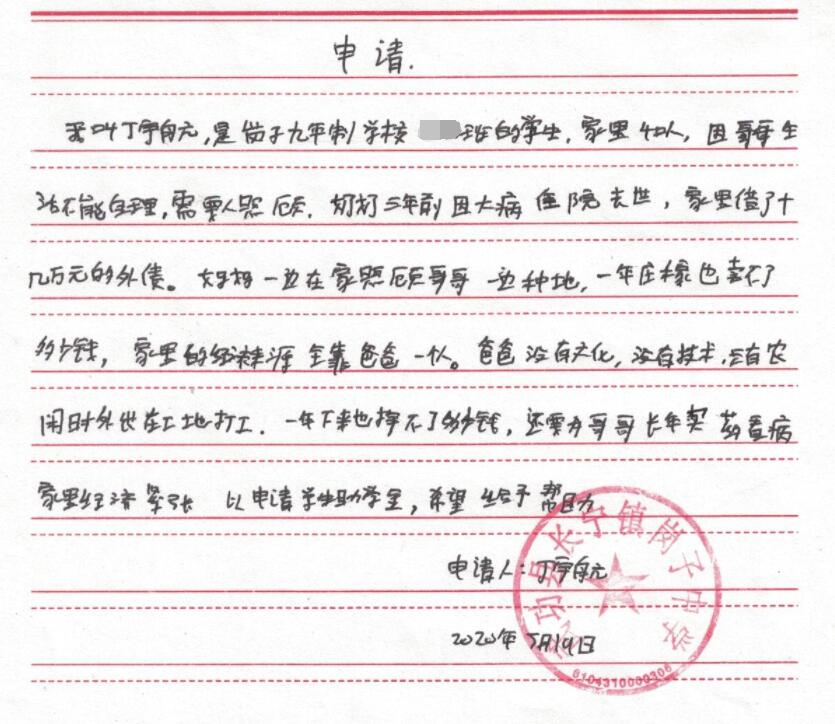 申请.
我叫丁宇航元,是岗子九年制学校 班的学生,家里4口人,因哥哥生
活不能自理,需要人照顾,奶奶三年前因大病住院去世,家里借了十
几万元的外债。妈妈一边在家照顾哥哥一边种地,一年庄稼也卖不了
多少钱,家里的经济来源全靠爸爸一人。爸爸没有文化,没有技术,只有农
闲时外出在工地打工.一年下来也挣不了多少钱,还要为哥哥长年买药看病
家里经济紧张 以申请学生助学金,希望给予帮助
申请人:丁宇航元
2020年5月19日
武功县长宁镇岗子中学
6104310000306